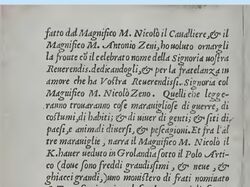 fatto dal Magnifico M. Nicolò il Caualliere, & il
Magnifico M. Antonio Zeni, ho voluto ornargli
la fronte cō il celebrato nome della Signoria uostra
Reuerendis. dedicandogli, & per la fratelanza in
amore che ha Vostra Reuerendiss. Signoria col
Magnifico M. Nicolò Zeno. Quelli che legge-
ranno trouaranno cose marauigliose di guerre, di
costumi, di habiti; & di uiuer di genti; & siti di
paesi, & animali diuersi, & pescagioni. Et fra l'al
tre marauiglie, narra il Magnifico M. Nicolò il
K. hauer ueduto in Grolandia sotto il Polo Arti-
co (doue sono freddi grandissimi, & neue, &
ghiacci grandi,) uno monistero di frati nominato